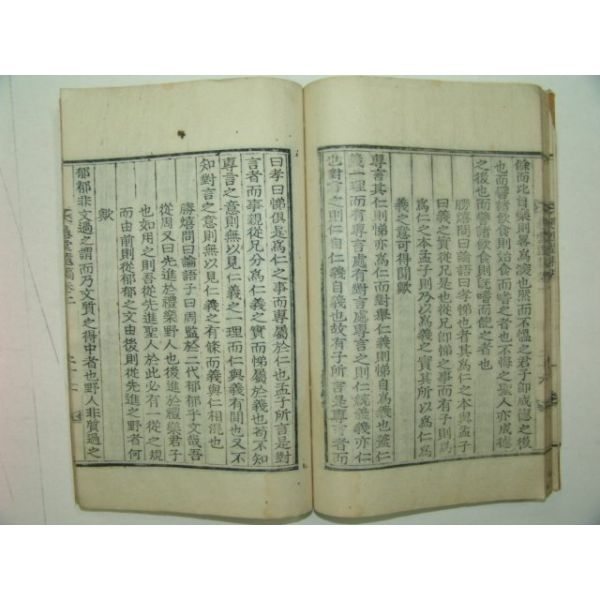 脩而比自樂則畧爲淺也然而不慍之君子卽成德之後
也而譬諸飮食則始食而嗜之者也不悔之聖人亦成德
之後也而譬諸飮食則旣嗜而飽之者也
勝熺問曰論語曰孝悌也者其爲仁之本與孟子
曰義之實從兄是也從兄卽悌之事而有子則爲
爲仁之本孟子則乃以爲義之實其所以爲仁爲
義之意可得聞歟
專言其仁則悌亦爲仁而對擧仁義則悌自爲義也蓋仁
義一理而有專言處有對言處專言之則仁統義義亦仁
也對言之則仁自仁義自義也故有子所言是專言者而
曰孝曰悌俱是爲仁之事而專屬於仁也孟子所言是對
言者而事親從兄分爲仁義之實而悌屬於義也苟不知
專言之意則無以見仁義之一理而仁與義有間也又不
知對言之意則無以見仁義之有條而義與仁相混也
勝熺問曰論語子曰周監於二代郁郁乎文哉吾
從周又曰先進於禮樂野人也後進於禮樂君子
也如用之則吾從先進聖人於此必有一從之規
而由前則從郁郁之文由後則從先進之野者何
歟
郁郁非文過之謂而乃文質之得中者也野人非質過之
堂遺稿卷二